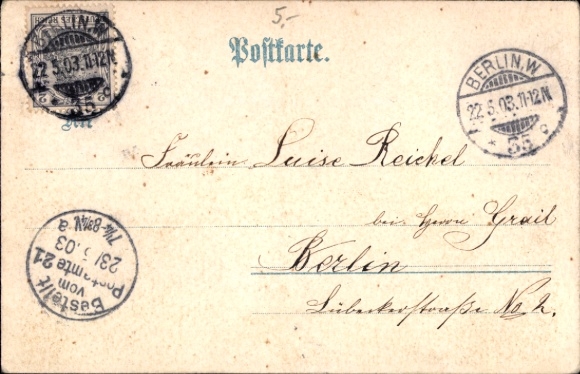 5.-
Postkarte.
BERLIN, W
22.5.03.11-12N.
* 35 c
BERLIN, W
22.5.03.11-12N.
* 35 c
An
Fräulein Luise Reichel
bei Herrn Grail
Berlin
Lübeckerstraße No. 2.
Bestellt
vom
Postamte 21
23/5.03
7¼-8¾N
a